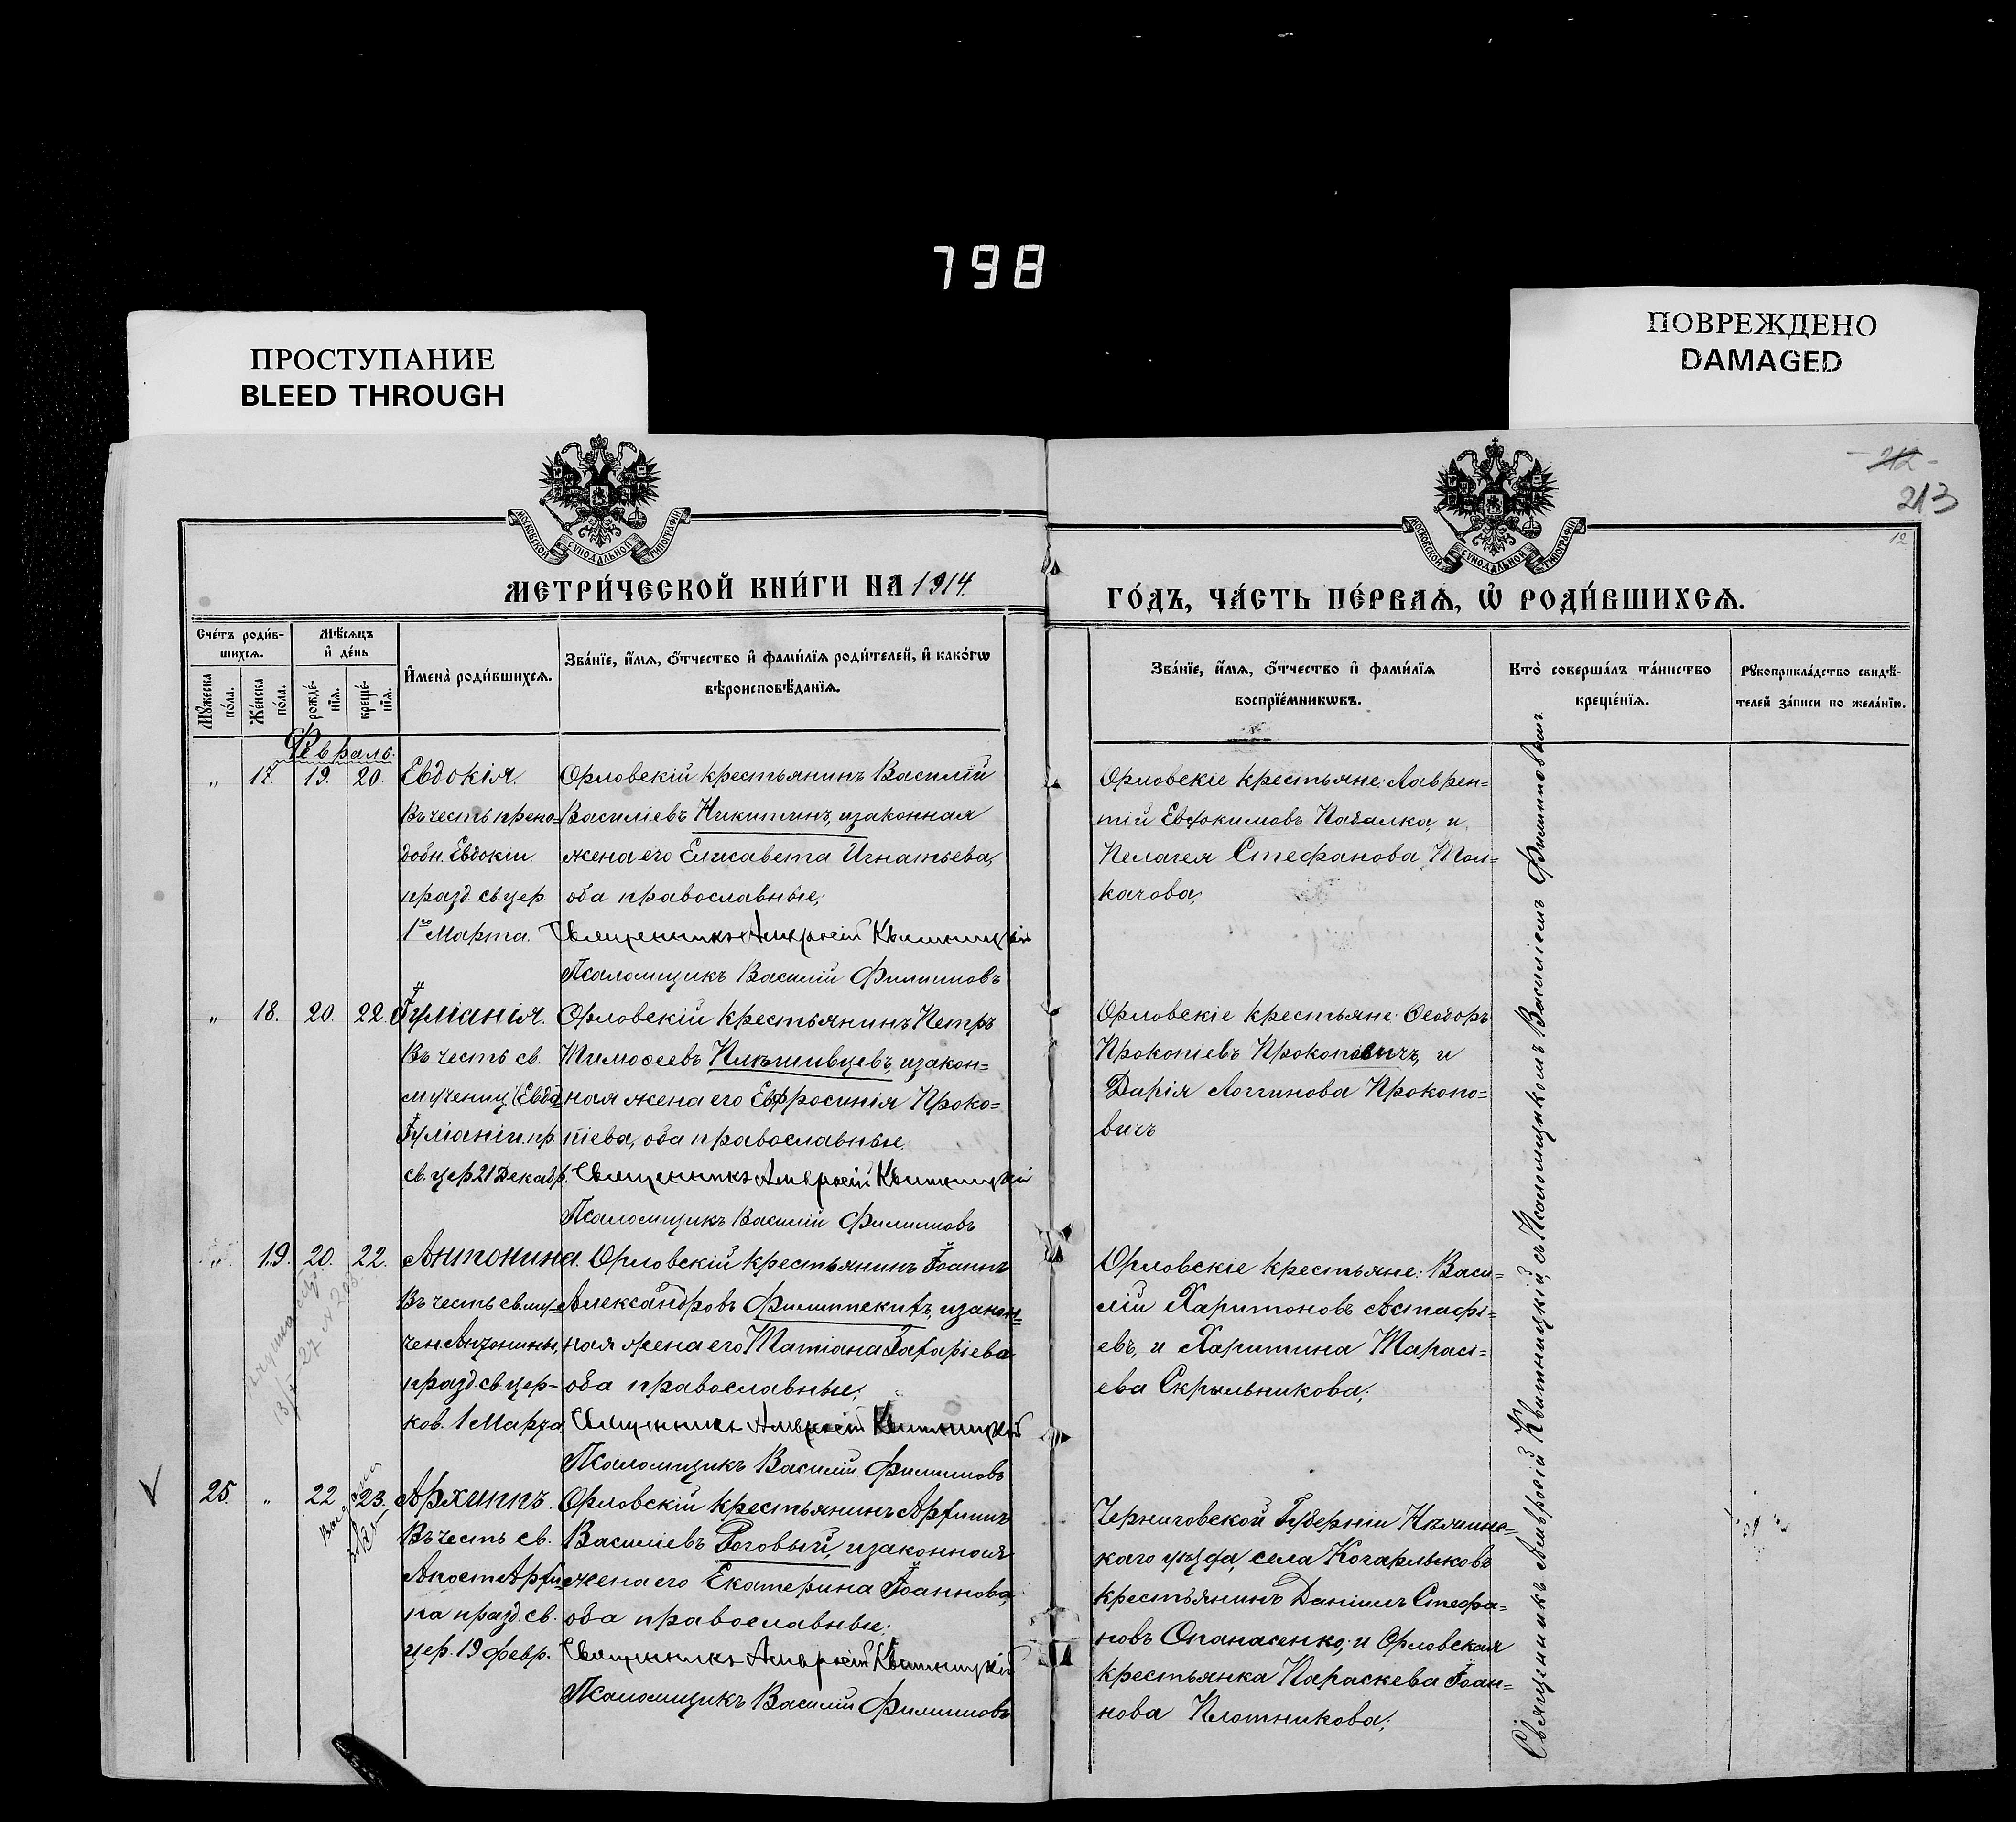 798
ПРОСТУПАНИЕ
BLEED THROUGH
ПОВРЕЖДЕНО
DAMAGED
- 212 -
213
12
МОСКОВСКОЙ СѴНОДАЛЬНОЙ ТИПОГРАФІИ
МОСКОВСКОЙ СѴНОДАЛЬНОЙ ТИПОГРАФІИ
МЕТРИ́ЧЕСКОЙ КНИ́ГИ НА 1914
ГО́ДЪ, ЧА́СТЬ ПЕ́РВАѦ, Ѡ҆ РОДИ́ВШИХСѦ.
Сче́тъ роди́в-
шихсѧ.
Мѣ́сѧцъ
и҆ де́нь
Мꙋ́жеска
по́ла.
Же́нска
по́ла.
рожде́-
нїѧ.
креще́-
нїѧ.
И҆мена̀ роди́вшихсѧ.
Зва́нїе, и҆́мѧ, ѻ҆́тчество и҆ фами́лїѧ роди́телей, и҆ како́гѡ
вѣроисповѣ́данїѧ.
Зва́нїе, и҆́мѧ, ѻ҆́тчество и҆ фами́лїѧ
воспрїе́мникѡвъ.
Кто̀ соверша́лъ та́инство
креще́нїѧ.
Рꙋкоприкла́дство свидѣ́-
телей за́писи по жела́нїю.
Февраль.
„ 17. 19. 20. Евдокія.
Въ честь препо-
добн. Евдокіи.
празд. св. цер.
1го Марта.
Орловскій крестьянинъ Василій
Василіевъ Никитинъ, и законная
жена его Елисавета Игнатьева,
оба православные;
Священникъ Амвросій Квитницкій
Псаломщикъ Василій Филипповъ
Орловскіе крестьяне: Лаврен=
тій Евфокимовъ Пабалка, и
Пелагея Стефанова Тол=
качова,
„ 18. 20. 22. Іуліанія.
Въ честь св.
мучениц. (Евдо
Іуліаніи. пр.
св. цер 21 Декабр.
Орловскій крестьянинъ Петръ
Тимофеевъ Плѣшивцевъ, и закон=
ная жена его Евфросинія Проко=
піева, оба православные;
Священникъ Амвросій Квитницкій
Псаломщикъ Василій Филипповъ
Орловскіе крестьяне: Ѳеодоръ
Прокопіевъ Прокоповичъ, и
Дарія Логгинова Прокопо=
вичъ
„ 19. 20. 22. Антонина.
Въ честь св. му-
чен. Антонины,
празд. св. цер-
ков. 1 Марта
Орловскій крестьянинъ Іоаннъ
Александровъ Филиппскитъ, и закон=
ная жена его Татіана Захаріева
оба православные;
Священникъ Амвросій Квитницкій
Псаломщикъ Василій Филипповъ
Орловскіе крестьяне: Васи=
лій Харитоновъ Астафі=
евъ, и Харитина Тарасі=
ева Скрыльникова;
25. „ 22 23. Архиппъ.
Въ честь св.
Апост. Архип
па празд. св.
цер. 19 февр.
Орловскій крестьянинъ Архиппъ
Василіевъ Роговый, и законная
жена его Екатерина Іоаннова,
оба православные;
Священникъ Амвросій Квитницкій
Псаломщикъ Василій Филипповъ
Черниговской Губерніи Нѣжинс=
каго уѣзда, села Кагарлыковъ
крестьянинъ Даніилъ Стефа=
новъ Опанасенко; и Орловская
крестьянка Параскева Іоан=
нова Плотникова;
Священникъ Амвросій Квитницкій, съ Псаломщикомъ Василіемъ Филипповымъ